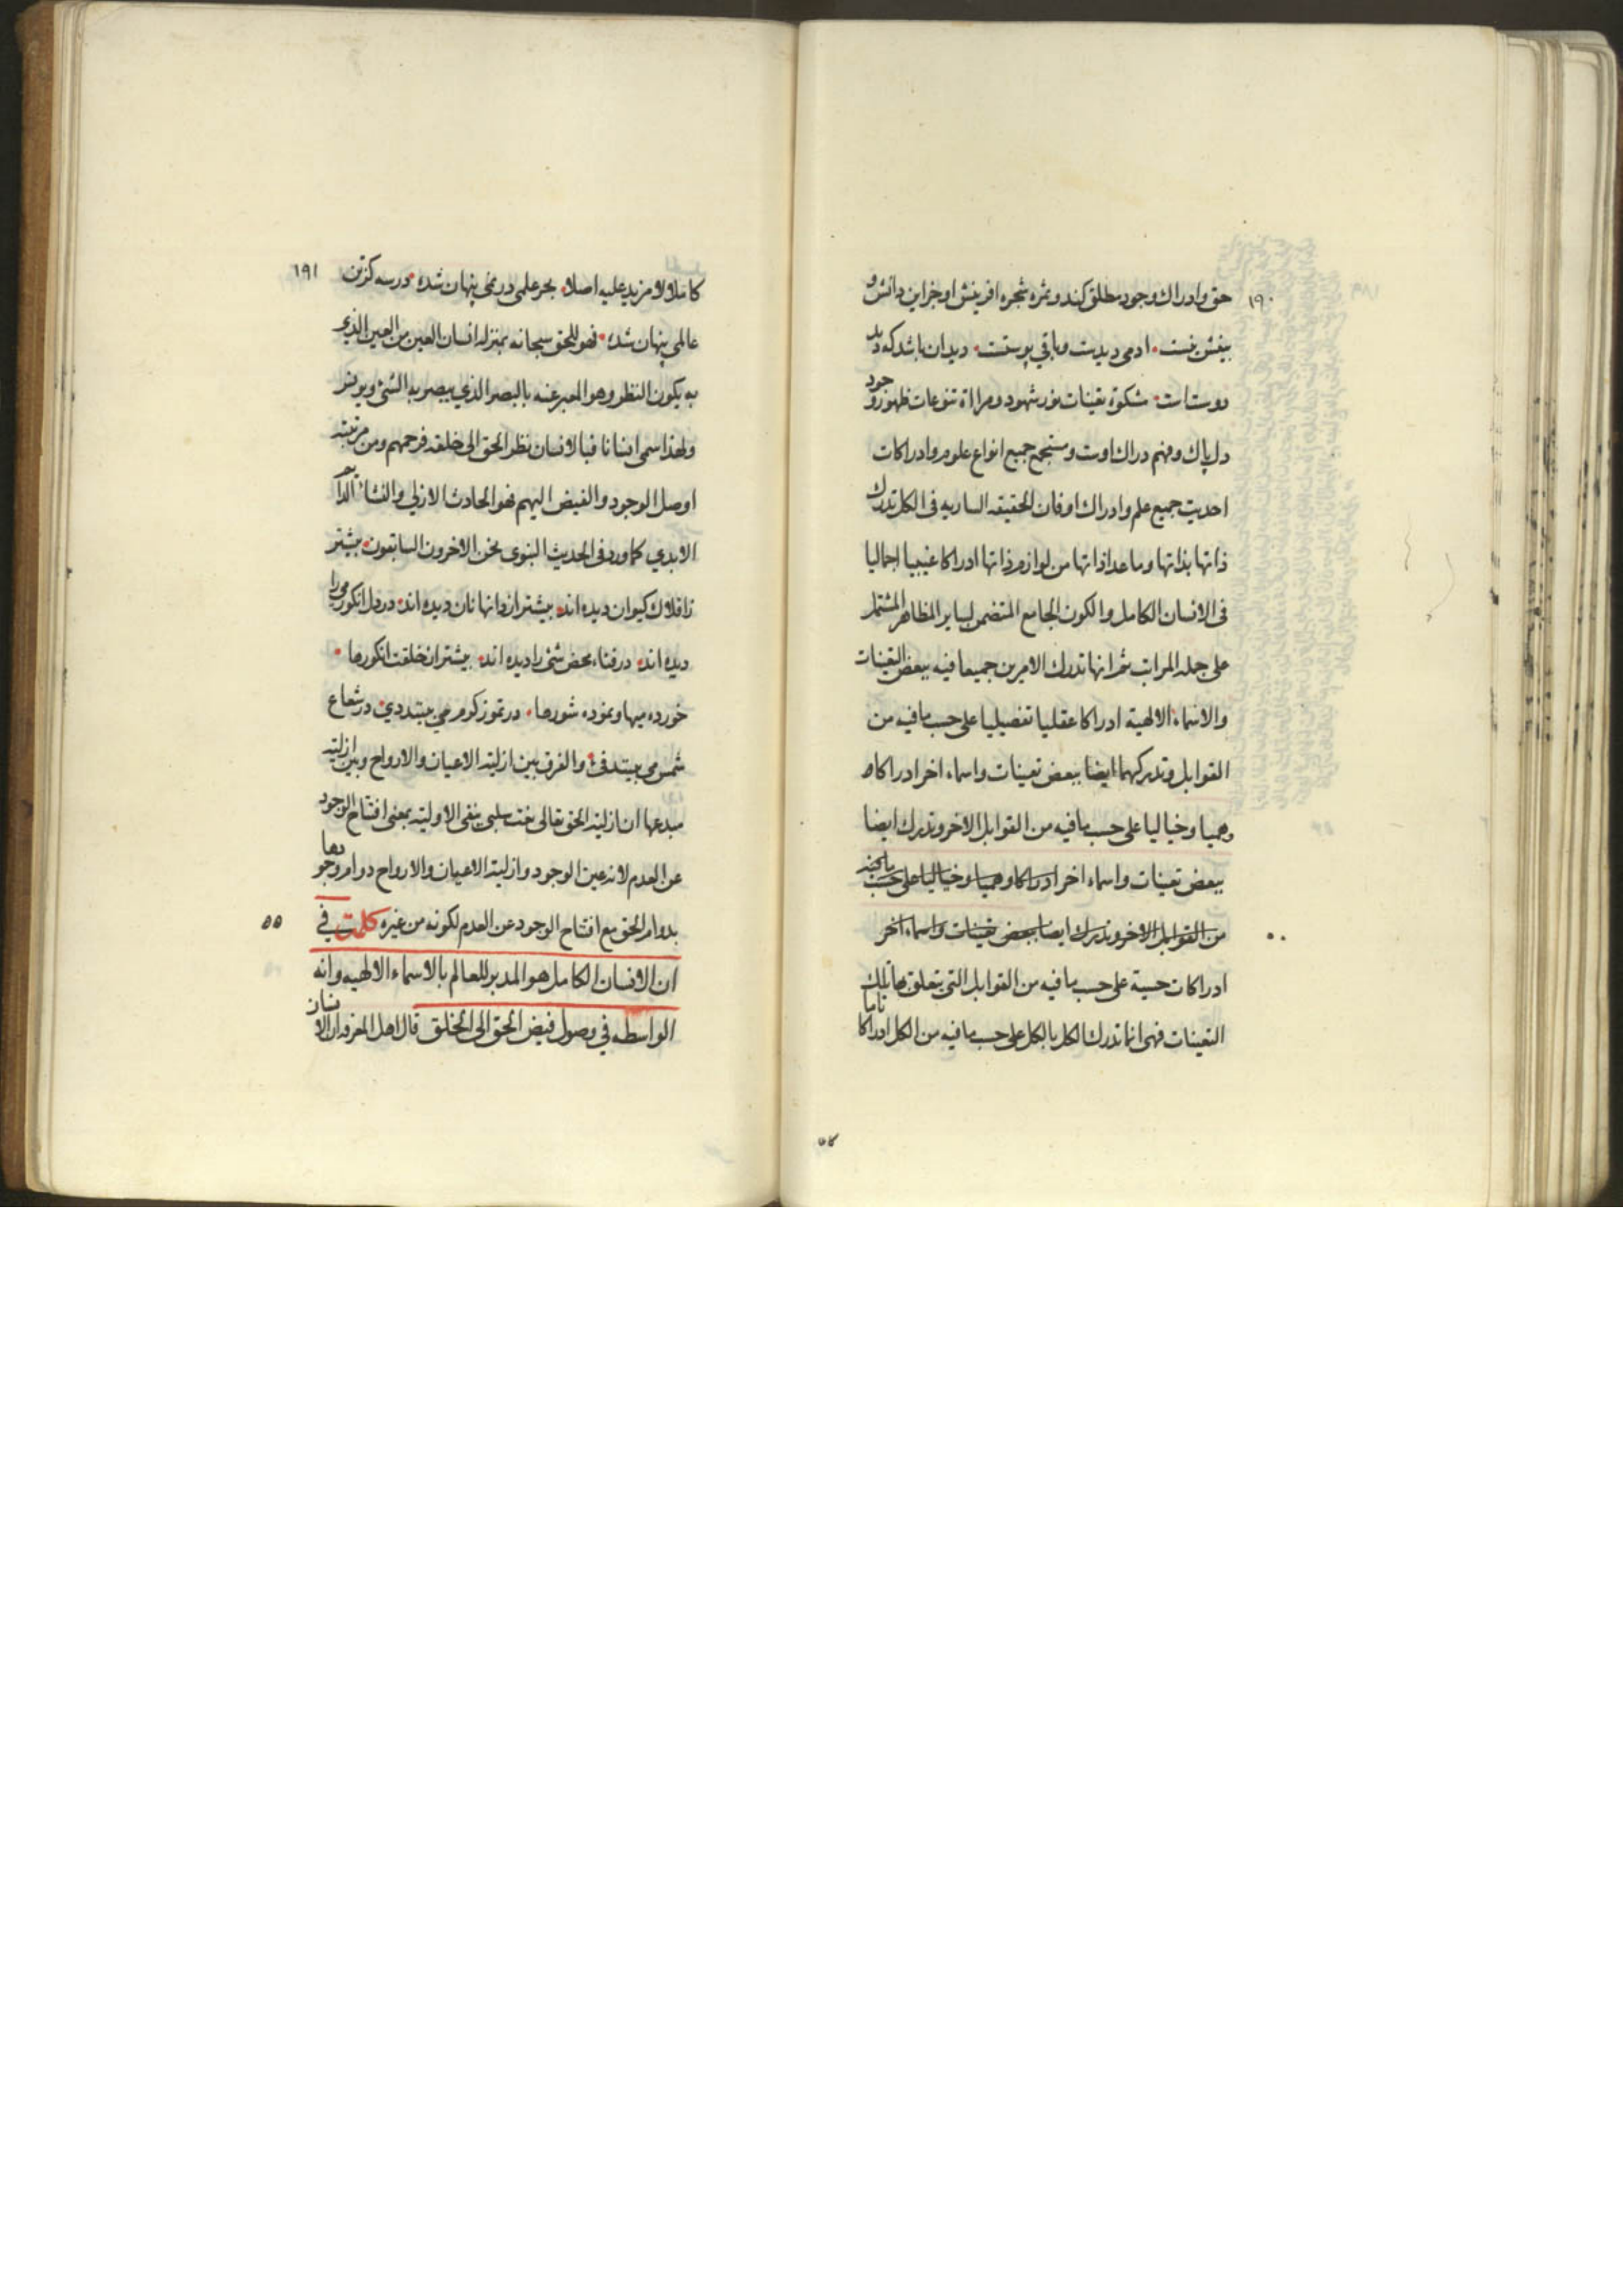 ١٩٠
حق وادراك وجود مطلق كند وثمره شجره افرينش او جزاين دانش و
بينش نيست ادمى ديدست وباقي پوستست ديدان باشد كه ديد
دوستاست مشكوة تعينات نور شهود ومراة تنوعات ظهور وجود
دل پاك وفهم دراك اوست ومستجمع جميع انواع علوم وادراكات
احديت جميع علم وادراك او فان الحقيقه الساريه فى الكل تدرك
ذاتها بذاتها وما عدا ذاتها من لوازم ذاتها ادراكا غيبيا اجماليا
فى الانسان الكامل والكون الجامع المتضمن لساير المظاهر المشتمل
على جمله المراتب ثم انها تدرك الامرين جميعا فيه ببعض التعينات
والاسماء الالهية ادراكا عقليا تفصيليا على حسب ما فيه من
القوابل وتدركهما ايضا ببعض تعينات واسماء اخر ادراكا
وهميا وخياليا على حسب ما فيه من القوابل الاخر وتدرك ايضا
ببعض تعينات واسماء اخر ادراكا وهميا وخياليا على حسب ما فيه
من القوابل الاخر وتدرك ايضا ببعض تعينات واسماء اخر
ادراكات حسية على حسب ما فيه من القوابل التى يتعلق بها تلك
التعينات فهى انما تدرك الكل بالكل على حسب ما فيه من الكل ادراكا تاما
١٩١
كاملا لا مزيد عليه اصلا بحر علمى در نمى پنهان شده در سه كز تن
عالمى پنهان شده فهو للحق سبحانه بمنزله انسان العين من العين الذى
به يكون النظر وهو المعبر عنه بالبصر الذي يبصر به الشئ
ولهذا سمى انسانا فبالانسان نظر الحق الى خلقه فرحمهم ومن مرتبته
اوصل الوجود والفيض اليهم فهو الحادث الازلي والنشاء الدائم
الابدي كما ورد فى الحديث النبوى نحن الاخرون السابقون پيشتر
زافلاك كيوان ديده اند پيشتر از دانها نان ديده اند در دل انكور مى را
ديده اند در فناء محض شئ را ديده اند پيشتر از خلقت انكورها
خورده ميها ونموده شورها در تموز كرم مى بينند دى در شعاع
شمس مى بينند فئ والفرق بين ازلية الاعيان والارواح وبين ازلية
مبدعها ان ازلية الحق تعالى نعت سلبى ينفى الاولية بمعنى افتتاح الوجود
عن العدم لانه عين الوجود وازلية الاعيان والارواح دوام وجودها
بدوام الحق مع افتتاح الوجود عن العدم لكونه من غيره كلمت في
٥٥
ان الانسان الكامل هو المدبر للعالم بالاسماء الالهيه وانه
الواسطه في وصول فيض الحق الى الخلق قال اهل المعرفه ان الانسان